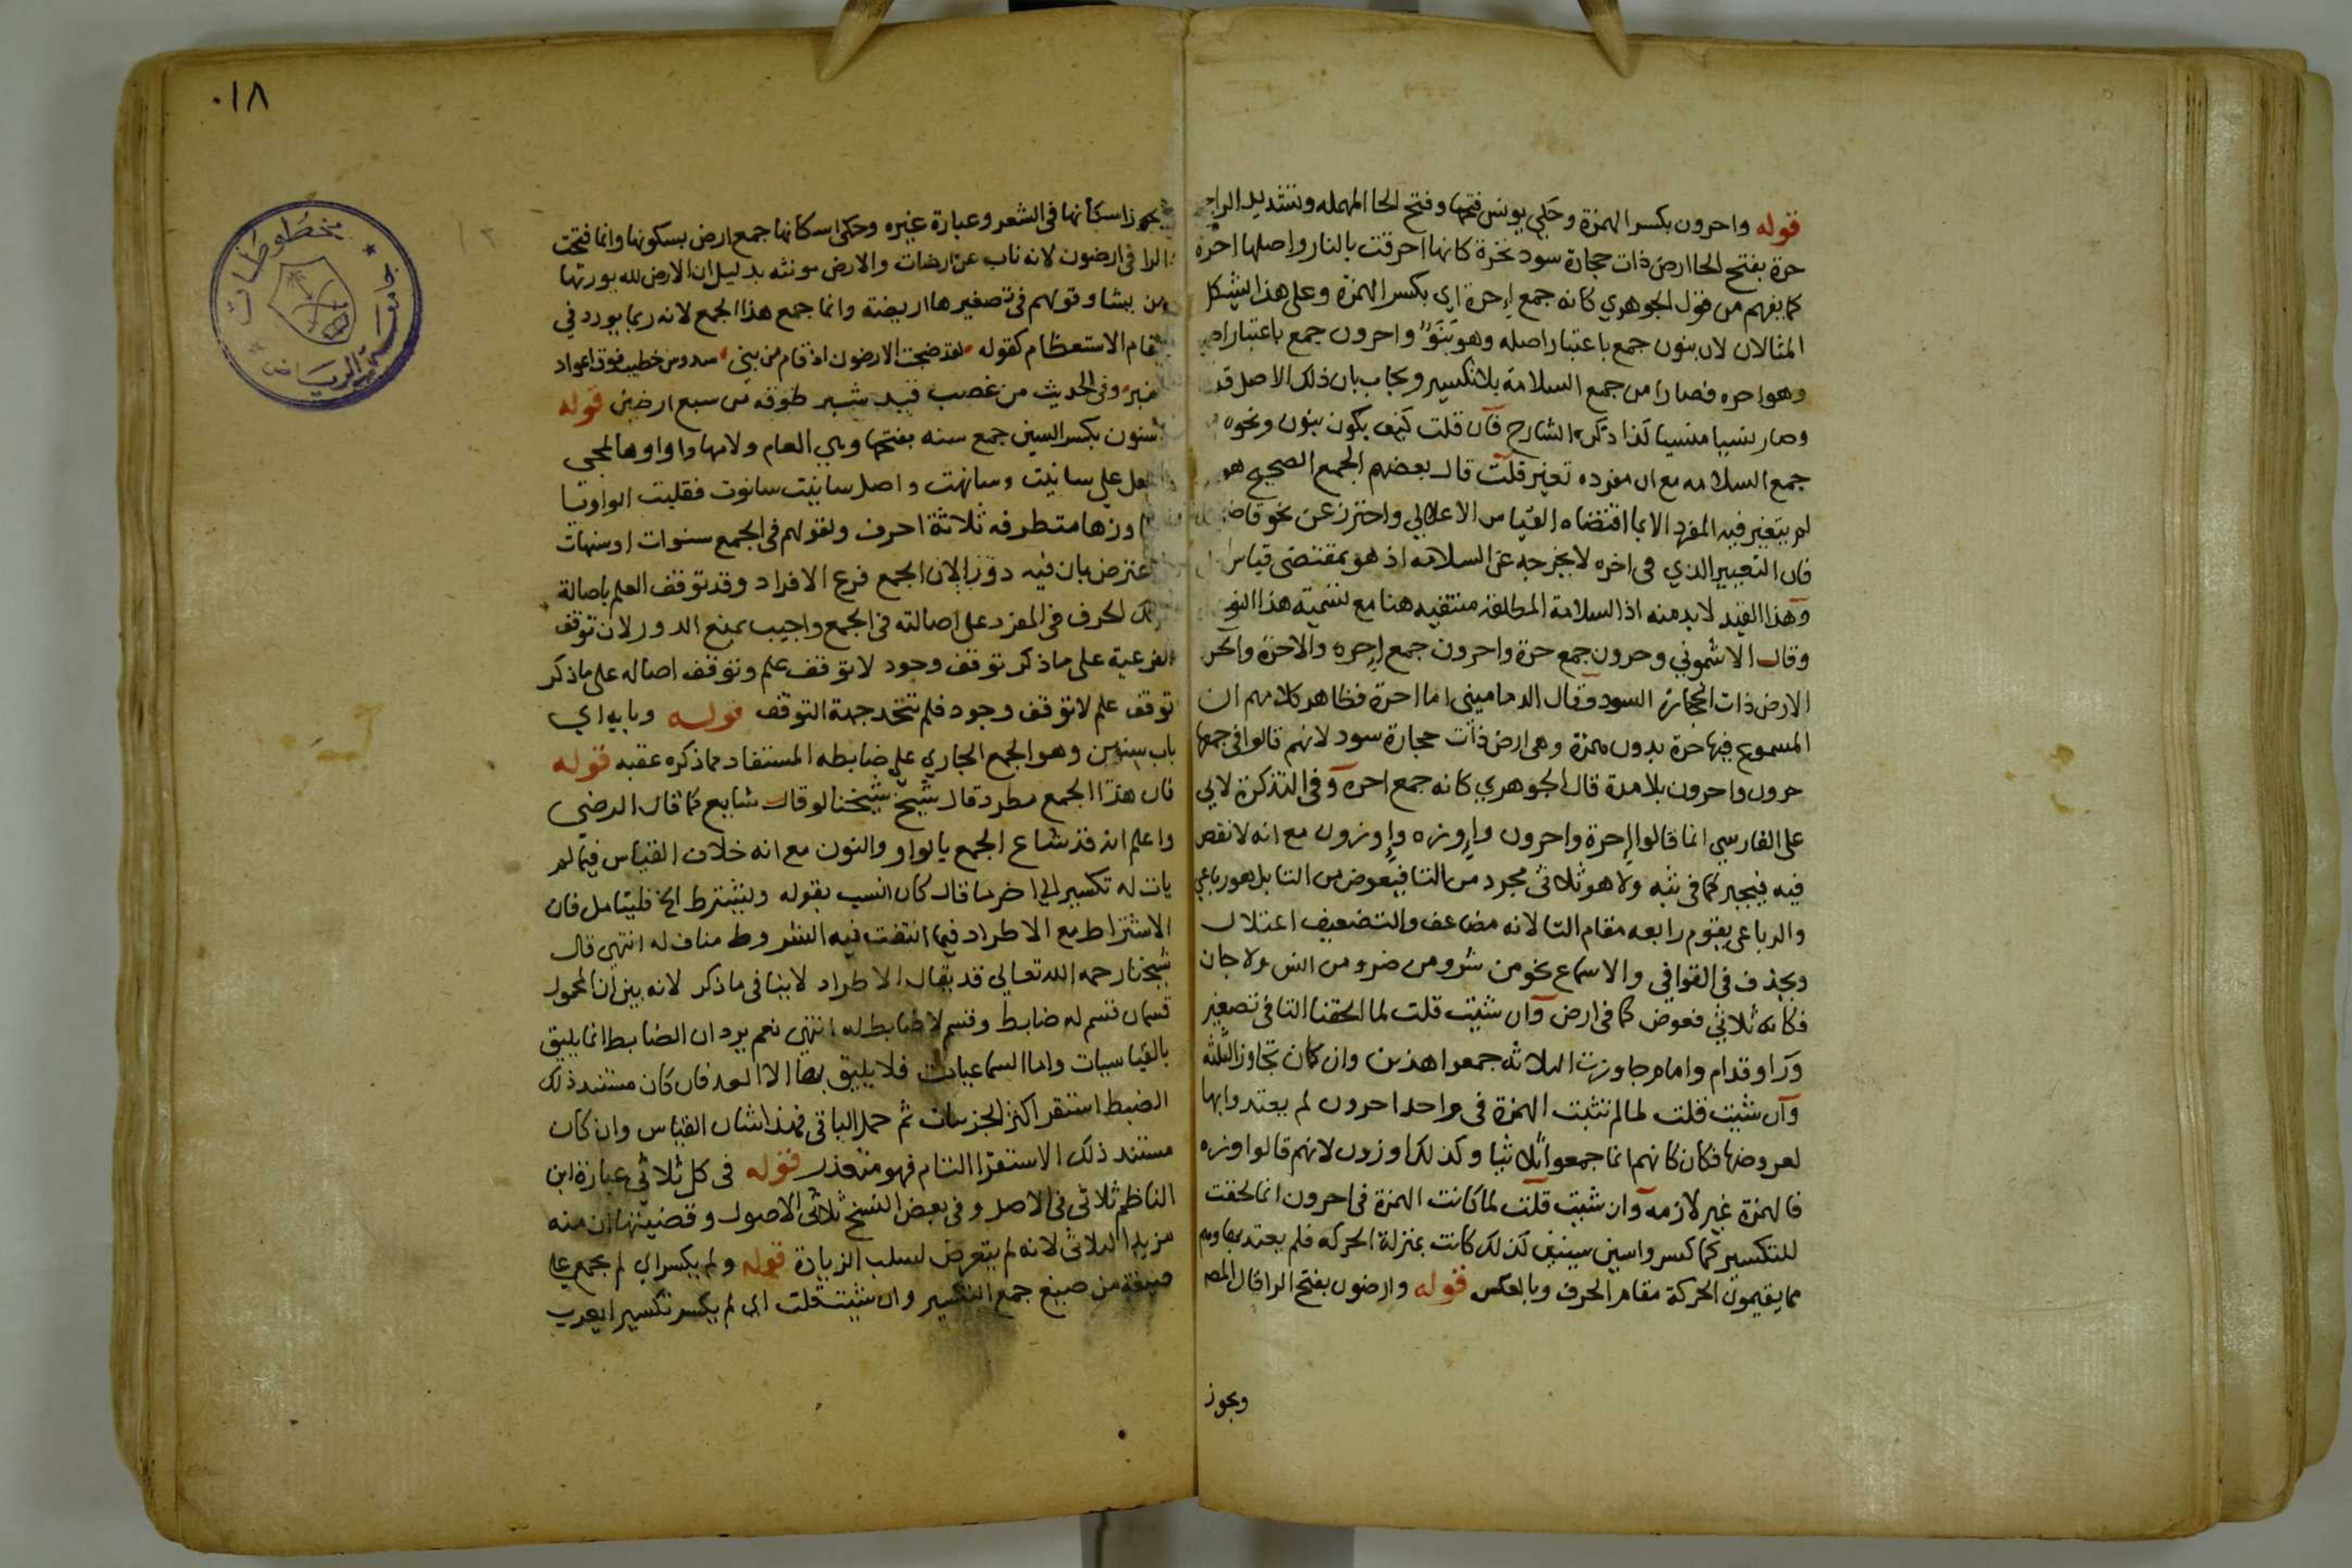 قوله واحرون بكسر الهمزة وحكي يونس فتحها وفتح الحا المهمله وتشديد الرا جمع
حرة بفتح الحا ارض ذات حجارة سود نخرة كانها احرقت بالنار واصلها احرة
كما يفهم من قول الجوهري كانه جمع إحرة اي بكسر الهمزة وعلى هذا يشكل
المثالان لان بنون جمع باعتبار اصله وهو بَنَوٌ واحرون جمع باعتبار اصله
وهو احره فصارا من جمع السلامة بلا تكسير ويجاب بان ذلك الاصل قد
وصار نسيا منسيا كذا ذكره الشارح فان قلت كيف يكون بنون ونحوه
جمع السلامه مع ان مفرده تغير قلت قال بعضهم الجمع الصحيح هو
لم يتغير فيه المفرد الا بما اقتضاه القياس الاعلالي واحترز عن نحو قاض
فان التغيير الذي في اخره لا يخرجه عن السلامه اذ هو بمقتضى قياس
وهذا القيد لا بد منه اذ السلامة المطلقة منتفيه هنا مع تسمية هذا النوع
وقال الاشموني وحرون جمع حرة واحرون جمع إحره والاحرة والحرة
الارض ذات الحجارة السود وقال الدماميني اما احرة فظاهر كلامهم ان
المسموع فيها حرة بدون همزة وهي ارض ذات حجارة سود لانهم قالوا في جمعها
حرون واحرون بلا مدة قال الجوهري كانه جمع احره وفي التذكرة لابي
على الفارسي انما قالوا إحرة واحرون وإوزه وإوزون مع انه لا نقص
فيه فيجبر كما في ثبه ولا هو ثلاثي مجرد من التا فيعوض من التا بل هو رباعي
والرباعي يقوم رابعه مقام التا لانه مضاعف والتضعيف اعتلال
ويحذف في القوافي والاسماع نحو من شر ومن ضر ومن انس ولا جان
فكانه ثلاثي فعوض كما في ارض وان شئت قلت لما الحقنا التا في تصغير
ورا وقدام وامام جاوزت الثلاثه جمعوا هذين وان كان تجاوز الثلثه
وان شئت قلت لما لم تثبت الهمزة في واحد احرون لم يعتدوا بها
لعروضها فكان كانهم انما جمعوا ثلاثيا وكذلك اوزون لانهم قالوا وزه
فالهمزة غير لازمه وان شئت قلت لما كانت الهمزة في احرون انما لحقت
للتكسير كما كسروا سين سنين كذلك كانت بمنزلة الحركه فلم يعتد بها وهم
مما يقيمون الحركة مقام الحرف وبالعكس قوله وارضون بفتح الرا قال المصـ
ويجوز
٠١٨
مخطوطات
جامعة الرياض
يجوز اسكانها في الشعر وعبارة غيره وحكى اسكانها جمع ارض بسكونها وانما فتحت
الرا في ارضون لانه ناب عن ارضات والارض مونثه بدليل ان الارض لله يورثها
من يشا وقولهم في تصغيرها اريضة وانما جمع هذا الجمع لانه ربما يورد في
مقام الاستعظام كقوله لقد ضجت الارضون اذ قام من بني سدوس خطيب فوق اعواد
منبر وفي الحديث من غصب قيد شبر طوقه من سبع ارضين قوله
سنون بكسر السين جمع سنه بفتحها وهي العام ولامها واو او ها لمجي
الفعل على سانيت وسانهت واصل سانيت سانوت فقلبت الواو يا
لمجاوزها متطرفه ثلاثة احرف ولقولهم في الجمع سنوات او سنهات
واعترض بان فيه دورا لان الجمع فرع الافراد وقد توقف العلم باصالة
ذلك الحرف في المفرد على اصالته في الجمع واجيب بمنع الدور لان توقف
الفرعية على ما ذكر توقف وجود لا توقف علم وتوقف اصاله على ما ذكر
توقف علم لا توقف وجود فلم تتحد جهة التوقف قوله وبابه اي
باب سنين وهو الجمع الجاري على ضابطه المستفاد مما ذكره عقبه قوله
فان هذا الجمع مطرد قال شيخ شيخنا لو قال شايع كما قال الرضي
واعلم انه قد شاع الجمع بالواو والنون مع انه خلاف القياس فيما لم
يات له تكسير الى اخر ما قال كان انسب بقوله ويشترط الخ فليتامل فان
الاشتراط مع الاطراد فيما انتفت فيه الشروط مناف له انتهى قال
شيخنا رحمه الله تعالى قد يقال الاطراد لا ينافي ما ذكر لانه بين ان المحمول
قسمان قسم له ضابط وقسم لا ضابط له انتهى نعم يرد ان الضابط انما يليق
بالقياسيات واما السماعيات فلا يليق بها الا العد فان كان مستند ذلك
الضبط استقرا اكثر الجزيات ثم حمل الباقي فهذا شان القياس وان كان
مستند ذلك الاستقرا التام فهو متعذر قوله في كل ثلاثي عبارة ابن
الناظم ثلاثي في الاصل وفي بعض النسخ ثلاثي الاصول وقضيتها ان منه
مزيد الثلاثي لانه لم يتعرض لسلب الزيادة قوله ولم يكسر اي لم يجمع على
صيغة من صيغ جمع التكسير وان شئت قلت اي لم يكسر تكسيرا يعرب